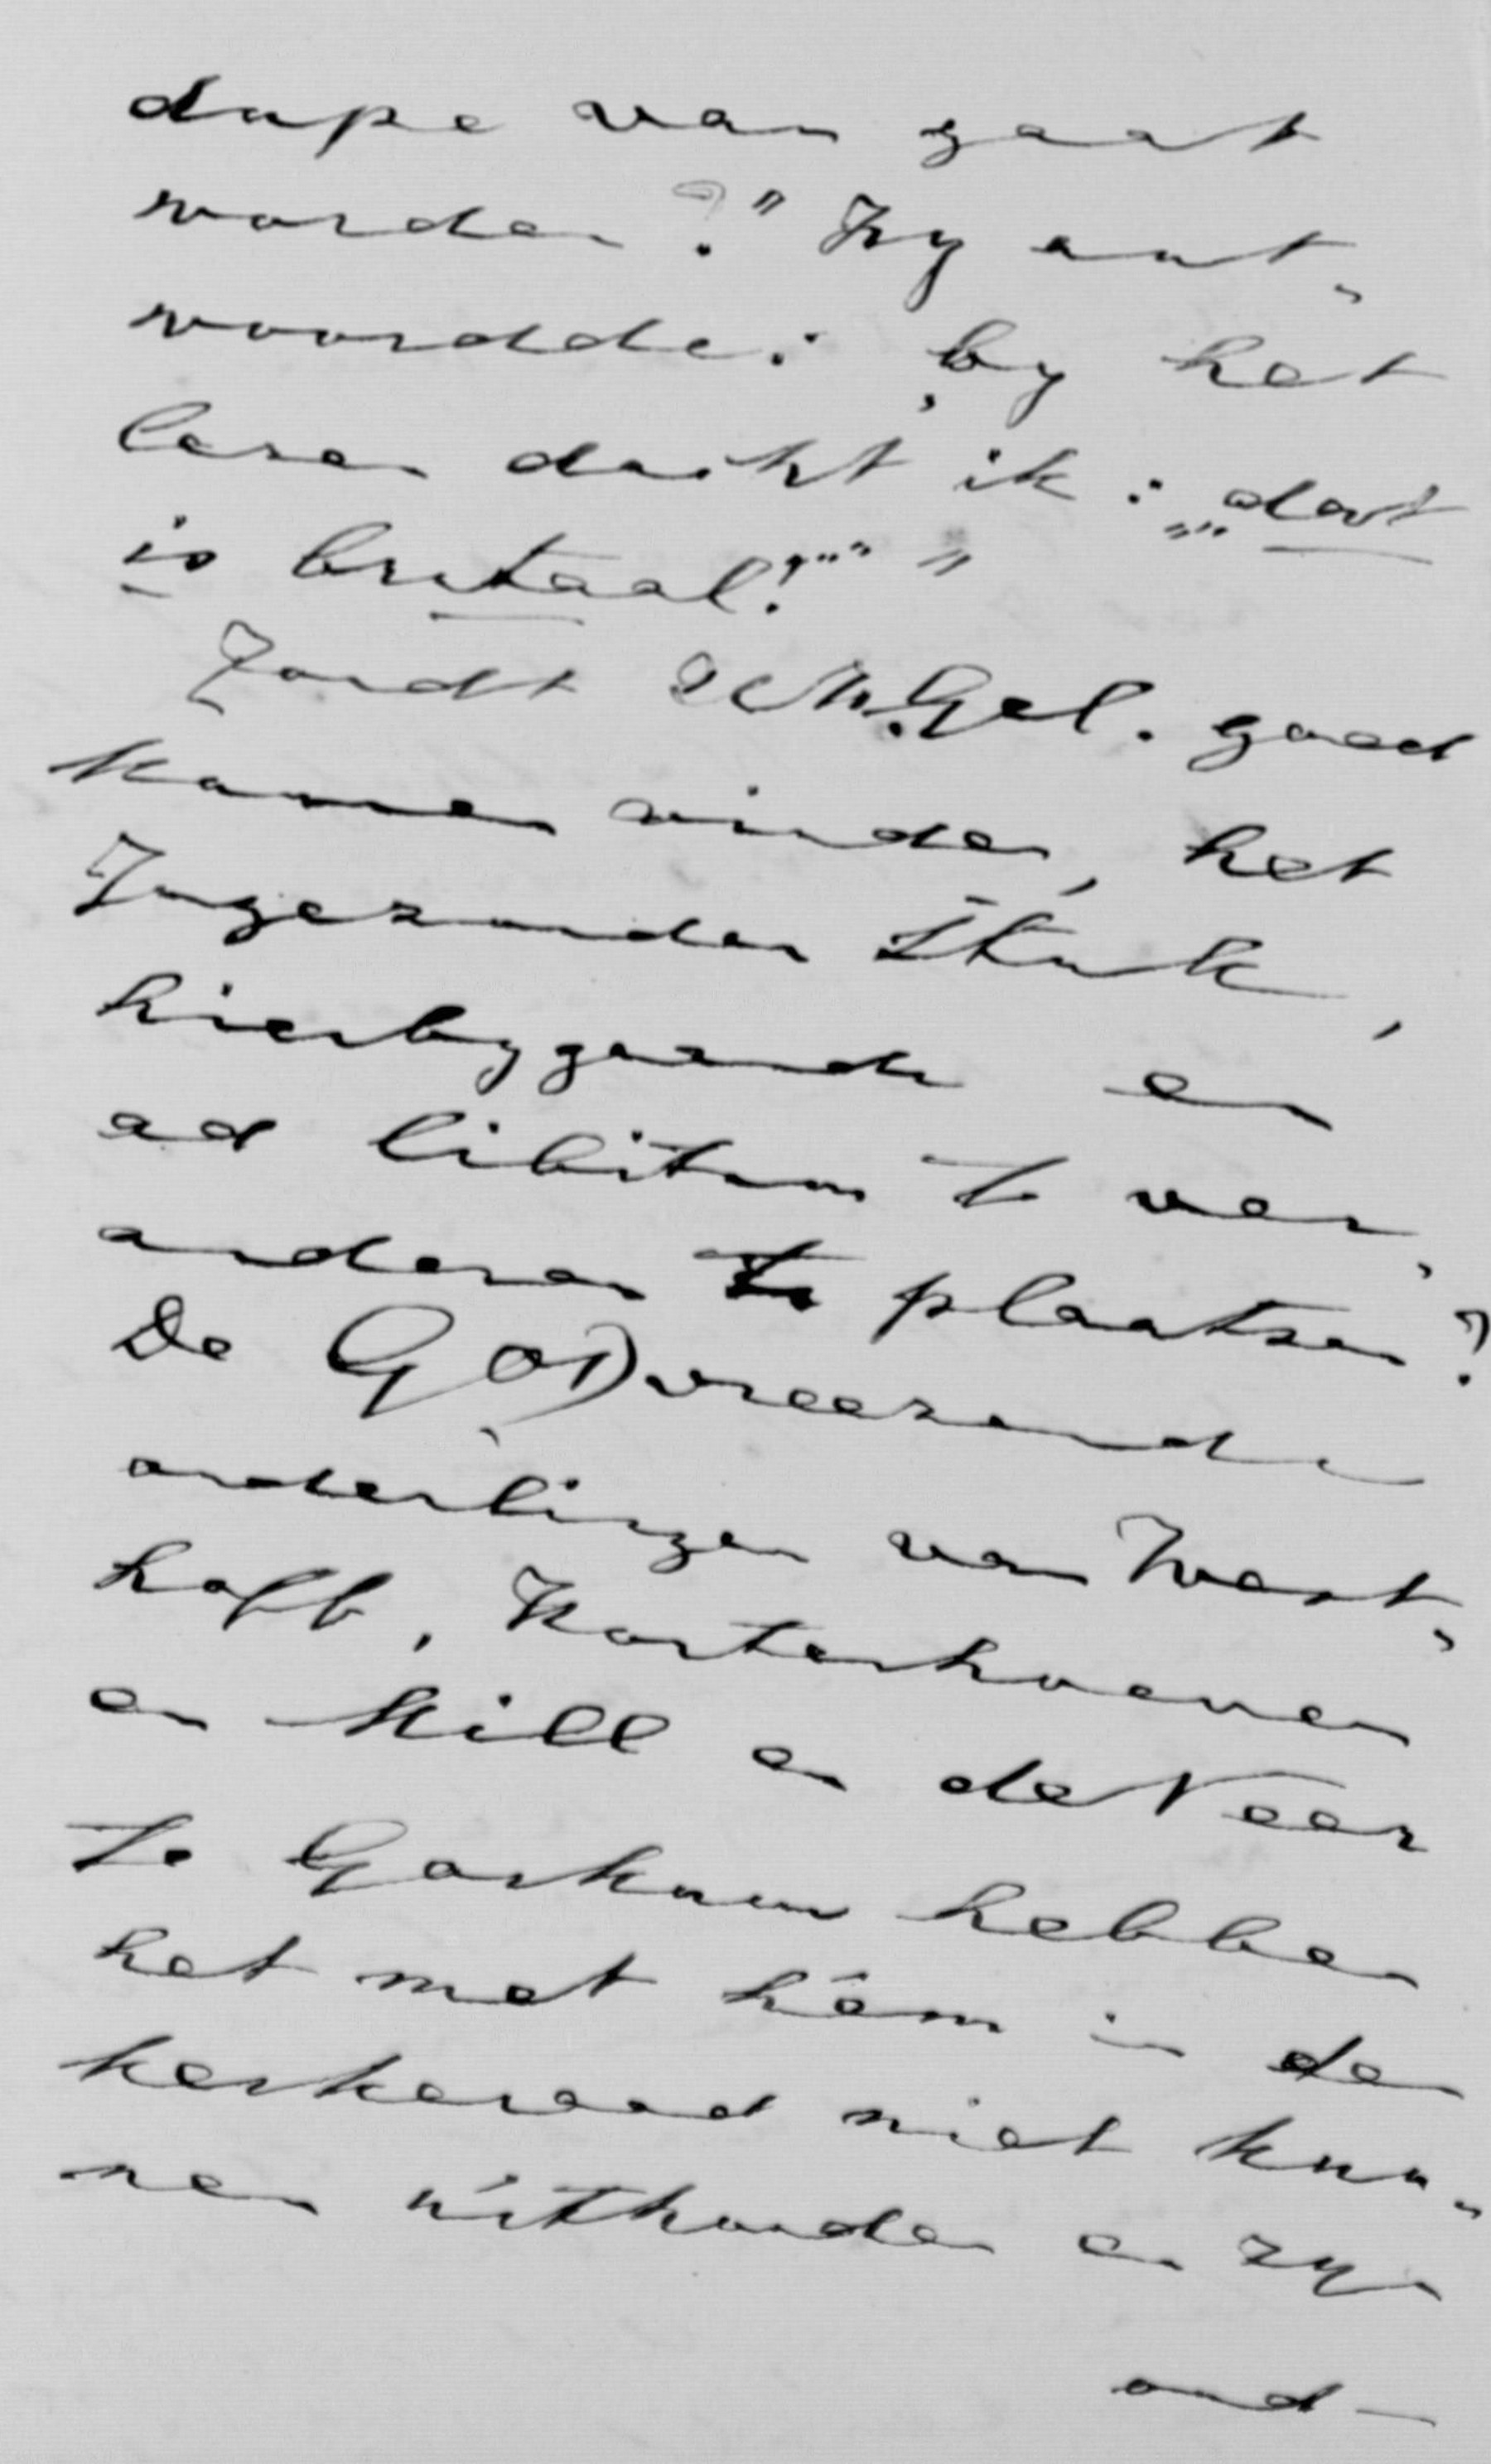 dupe van gaat
worden?" Hy ant„
woordde: „by het
lezen dacht ik: „„dat
is brutaal!"" "
Zoudt UWGel. goed
kunnen vinden, het
Ingezonden Stuk,
hierbygaande en
ad libitum te ver„
anderen te plaatsen?
De GODvreezende
ouderlingen van West„
hoff, Kortenhoeven
en Kill en de Veer
te Gorkum hebben
het met hém in den
kerkeraad niet kun„
nen uithouden en zyn
oud-